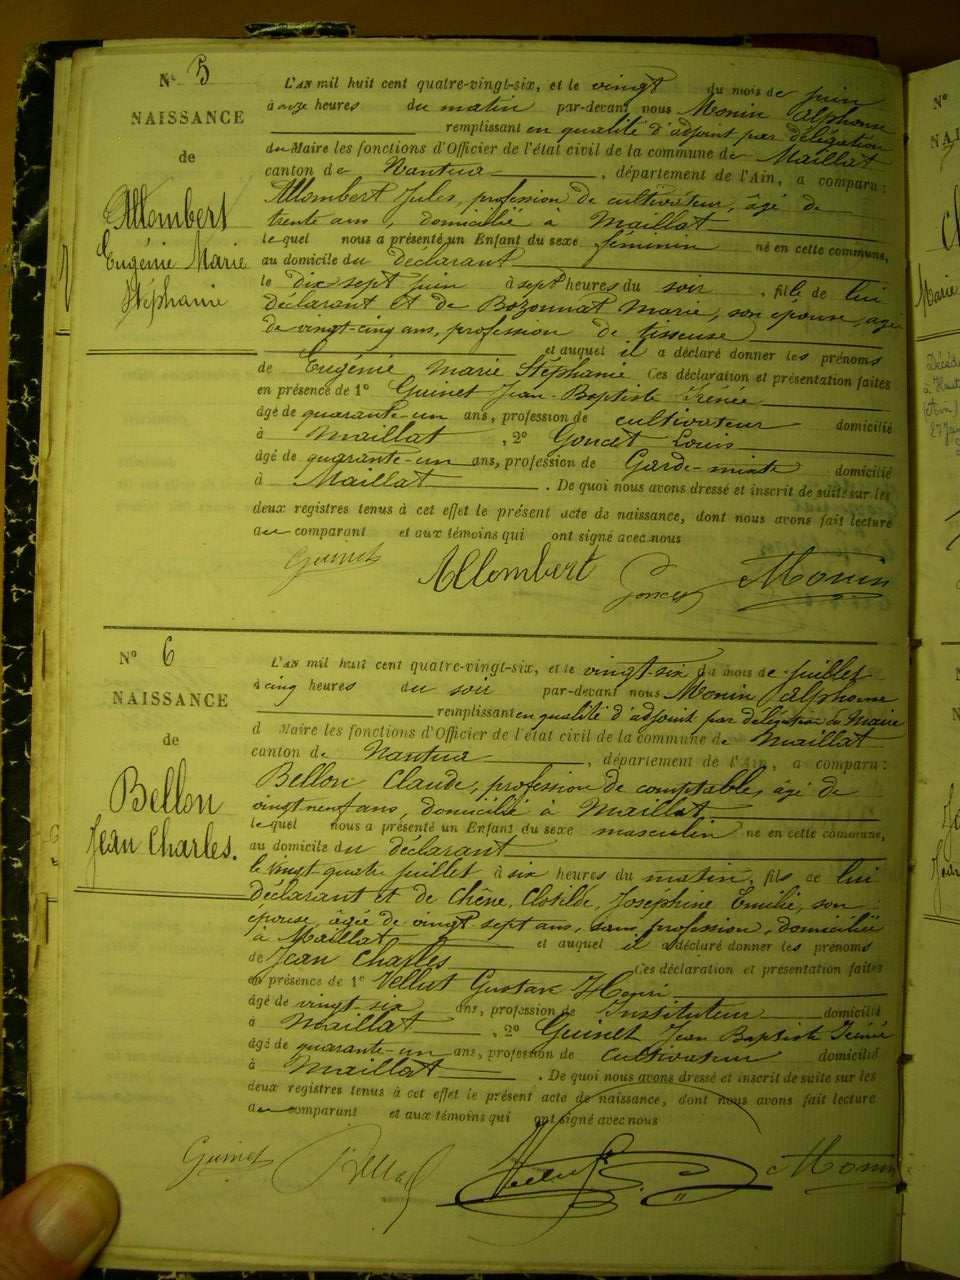 N° 5
NAISSANCE
de
Allombert
Eugénie Marie
Stéphanie
L'AN mil huit cent quatre-vingt-six, et le vingt du mois de juin
à onze heures du matin par-devant nous Monin Alphonse
remplissant en qualité d'adjoint par délégation
du Maire les fonctions d'Officier de l'état civil de la commune de Maillat
canton de Nantua, département de l'Ain, a comparu :
Allombert Jules, profession de cultivateur, âgé de
trente ans, domicilié à Maillat
lequel nous a présenté un Enfant du sexe féminin né en cette commune,
au domicile du déclarant
le dix sept juin à sept heures du soir, fille de lui
déclarant et de Bozonnat Marie, son épouse, agée
de vingt-cinq ans, profession de tisseuse
et auquel il a déclaré donner les prénoms
de Eugénie Marie Stéphanie Ces déclaration et présentation faites
en présence de 1° Guinet Jean-Baptiste Irénée
âgé de quarante-un ans, profession de cultivateur domicilié
à Maillat, 2° Goncet Louis
âgé de quarante-un ans, profession de Garde-mixte domicilié
à Maillat. De quoi nous avons dressé et inscrit de suite sur les
deux registres tenus à cet effet le présent acte de naissance, dont nous avons fait lecture
au comparant et aux témoins qui ont signé avec nous
Guinet Allombert Goncet Monin
N° 6
NAISSANCE
de
Bellon
Jean Charles.
L'AN mil huit cent quatre-vingt-six, et le vingt-six du mois de juillet
à cinq heures du soir par-devant nous Monin Alphonse
remplissant en qualité d'adjoint par délégation du Maire
d Maire les fonctions d'Officier de l'état civil de la commune de Maillat
canton de Nantua, département de l'Ain, a comparu :
Bellon Claude, profession de comptable, âgé de
vingt neuf ans, domicilié à Maillat
lequel nous a présenté un Enfant du sexe masculin né en cette commune,
au domicile du déclarant
le vingt quatre juillet à six heures du matin, fils de lui
déclarant et de Chêne, Clotilde, Joséphine Emilie, son
épouse, âgée de vingt-sept ans, sans profession, domiciliée
à Maillat et auquel il a déclaré donner les prénoms
de Jean Charles Ces déclaration et présentation faites
en présence de 1° Vellut Gustave Henri
âgé de vingt six ans, profession de Instituteur domicilié
à Maillat, 2° Guinet Jean Baptiste Irénée
âgé de quarante-un ans, profession de cultivateur domicilié
à Maillat. De quoi nous avons dressé et inscrit de suite sur les
deux registres tenus à cet effet le présent acte de naissance, dont nous avons fait lecture
au comparant et aux témoins qui ont signé avec nous
Guinet Bellon Vellut Monin
N°
Marie
Décédé
à
(Ain)
27